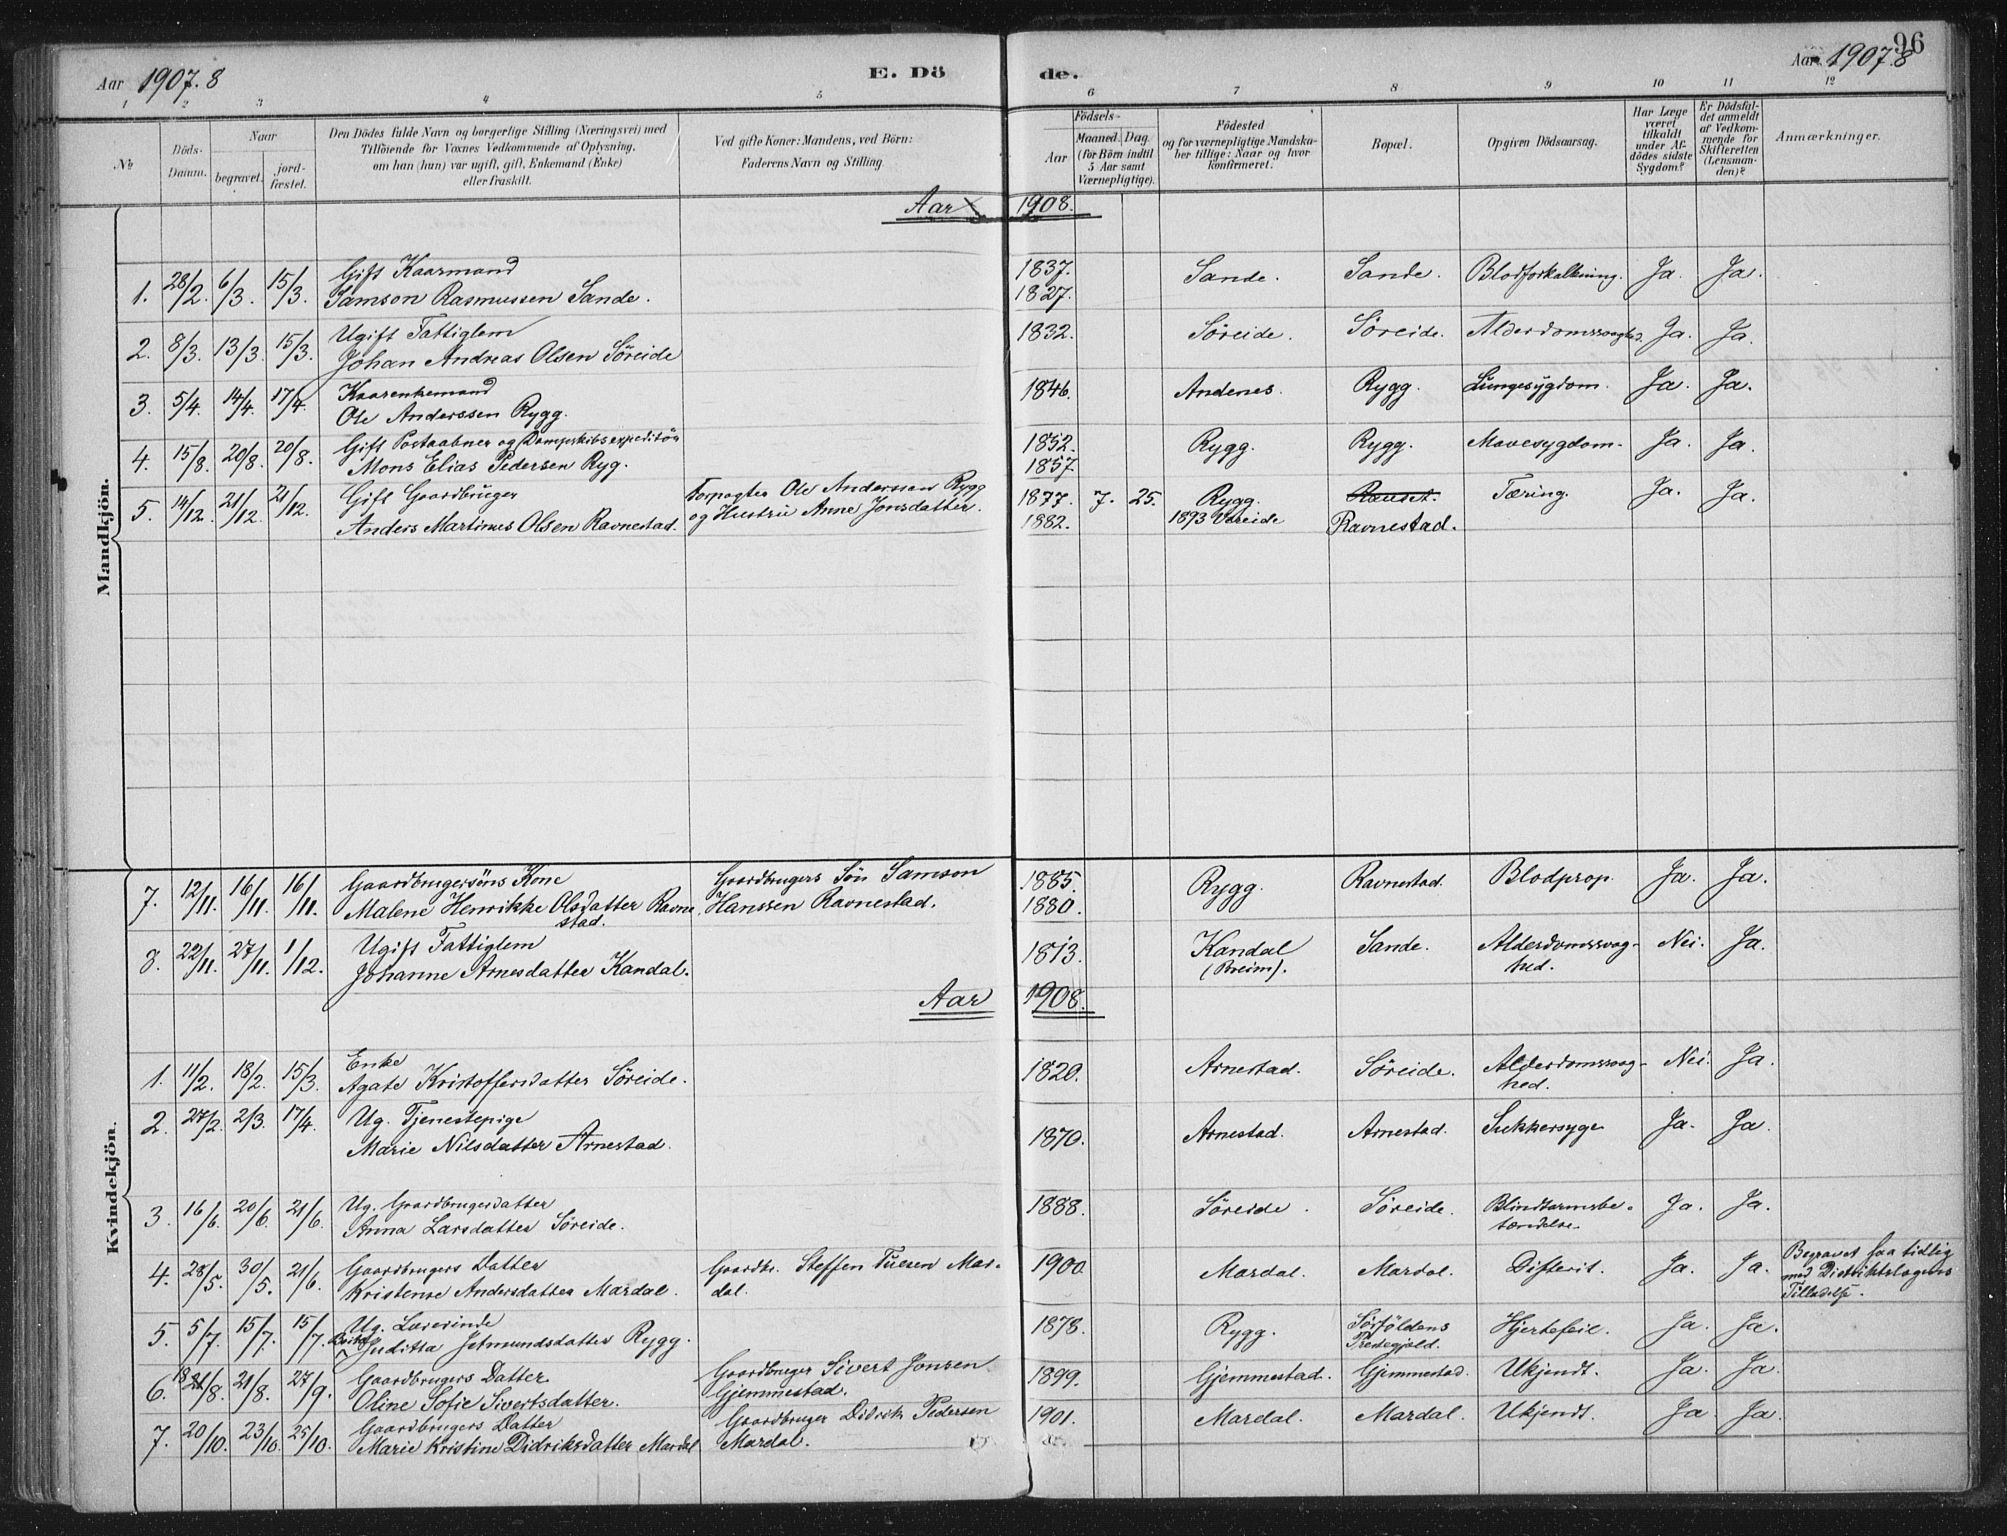 96
Aar 1907.8
E. Dö
de.
Aar 1907.8
1 2 3 4 5 6 7 8 9 10 11 12
No
Döds-
Datum.
Naar
begravet.
jord-
fæstet.
Den Dödes fulde Navn og borgerlige Stilling (Næringsvei) med
Tilföiende for Voxnes Vedkommende af Oplysning,
om han (hun) var ugift, gift, Enkemand (Enke)
eller fraskilt.
Ved gifte Koner: Mandens, ved Börn:
Faderens Navn og Stilling
Födsels-
Aar
Maaned.
Dag.
(for Börn indtil
5 Aar samt
Værnepligtige).
Födested
og for værnepligtige Mandska-
ber tillige: Naar og hvor
konfirmeret.
Bopæl.
Opgiven Dödsaarsag.
Har Læge
været
tilkaldt
under Af-
dödes sidste
Sygdom?
Er Dödsfal-
det anmeldt
af Vedkom-
mende for
Skifteretten
(Lensman-
den)?
Anmærkninger.
Mandkjön.
Aar 1908.
1. 28/2. 6/3. 15/3. Gift Kaarmand
Samson Rasmussen Sande. 1837. 1827. Sande. Sande. Blodforkalkning. Ja. Ja.
2. 8/3. 13/3. 15/3. Ugift Fattiglem
Johan Andreas Olsen Söreide 1832. Söreide. Söreide. Alderdomssvaghed. Ja. Ja.
3. 5/4. 14/4. 17/4. Kaarenkemand
Ole Anderssen Rygg. 1846. Andenes. Rygg. Lungesygdom. Ja. Ja.
4. 15/8. 20/8. 20/8. Gift Postaabner og Dampskibsexpeditör
Mons Elias Pedersen Ryg. 1852. 1857. Rygg. Rygg. Mavesygdom. Ja. Ja.
5. 14/12. 21/12. 21/12. Gift Gaardbruger Forpagter Ole Anderssen Rygg 1877. 7. 25. Rygg. Tæring. Ja. Ja.
Anders Martinus Olsen Ravnestad. og Hustru Anne Jonsdatter. 1882. 1893 Vereide Ravnestad.
Kvindekjön.
7. 12/11. 16/11. 16/11. Gaardbrugersöns Kone Gaardbrugers Sön Samson 1885. Rygg. Ravnestad. Blodprop. Ja. Ja.
Malene Henrikke Olsdatter Ravne Hanssen Ravnestad. 1880.
stad.
8. 22/11. 27/11. 1/12. Ugift Fattiglem 1813. Kandal Sande. Alderdomssvag- Nei. Ja.
Johanne Arnesdatter Kandal. (Breim). hed.
Aar 1908.
1. 11/2. 18/2. 15/3. Enke
Agate Kristoffersdatter Söreide. 1820. Arnestad. Söreide. Alderdomssvag- Nei. Ja.
hed.
2. 27/2. 2/3. 17/4. Ug. Tjenestepige
Marie Nilsdatter Arnestad. 1870. Arnestad. Arnestad. Sukkersyge Ja. Ja.
3. 16/6. 20/6. 21/6. Ug. Gaardbrugerdatter
Anna Larsdatter Söreide. 1888. Söreide. Söreide. Blindtarmsbe- Ja. Ja.
tændelse.
4. 28/5. 30/5. 21/6. Gaardbrugers Datter Gaardbr. Steffen Mar- 1900. Mardal. Mardal. Difterit. Ja. Ja. Begravet saa tidlig
Kristense Andersdatter Mardal. dal. med Distriktslægens
Tilladelse.
5. 5/7. 15/7. 15/7. Ug. Lærerinde
Juditta Jetmundsdatter Rygg. 1878. Rygg. Hjertefeil. Ja. Ja.
6. 21/8. 27/9. Gaardbrugers Datter Gaardbruger Sivert Jonsen 1899. Gjemmestad. Gjemmestad. Ukjendt. Ja. Ja.
Oline Sofie Sivertsdatter. Gjemmestad.
7. 20/10. 23/10. 25/10. Gaardbrugers Datter Gaardbruger Didrik Pedersen 1901. Mardal. Mardal. Ukjendt. Ja. Ja.
Marie Kristine Didriksdatter Mardal Mardal.